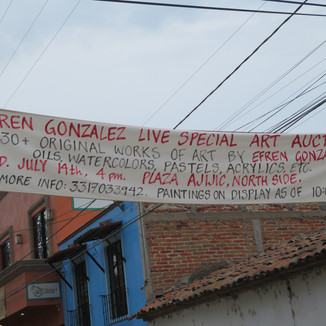 FREN GONZALEZ LIVE SPECIAL ART AUCT
30+ ORIGINAL WORKS OF ART BY EFREN GONZA
OILS, WATERCOLORS, PASTELS, ACRYLICS, ETC.
D. JULY 14th, 4 pm. PLAZA AJIJIC, NORTH SIDE.
MORE INFO: 3317033942. PAINTINGS ON DISPLAY AS OF 10